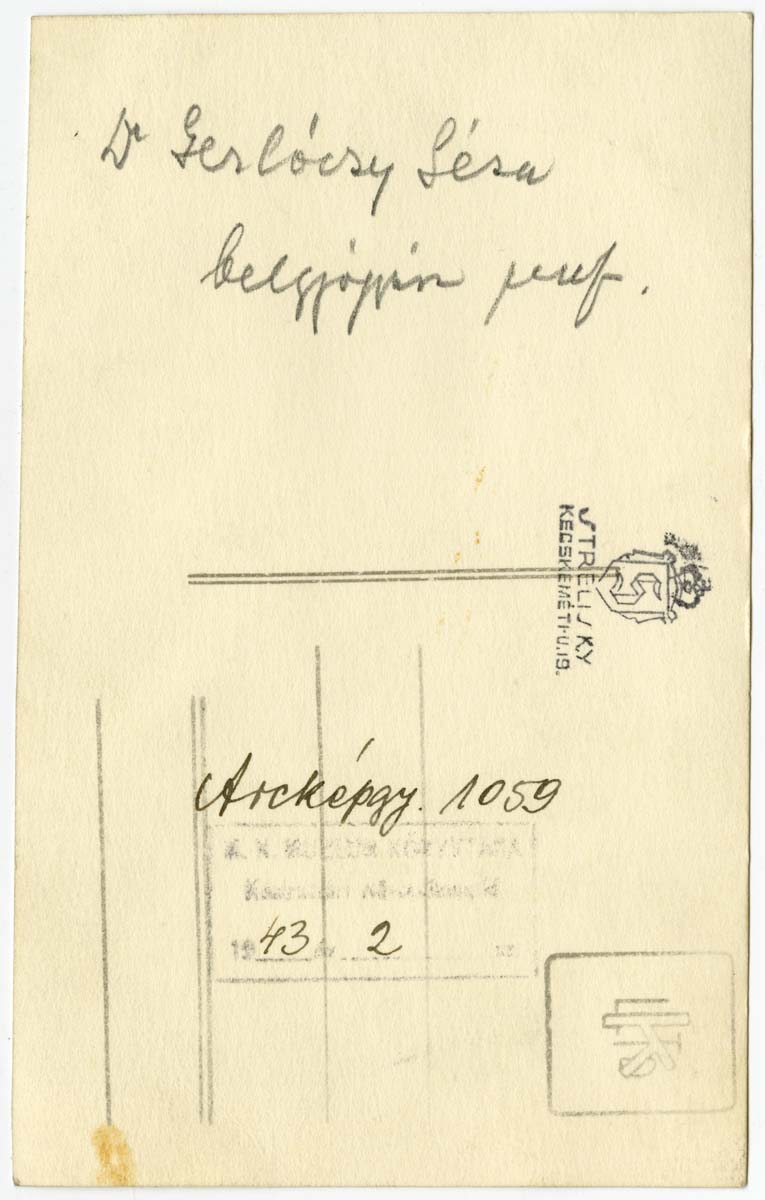 Dr Gerlóczy Géza
belgyógyász prof.
STRELISKY
KECSKEMÉTI-U.19.
Arcképgy. 1059
M. N. MÚZEUM KÖNYVTÁRA
1943 év 2 sz.